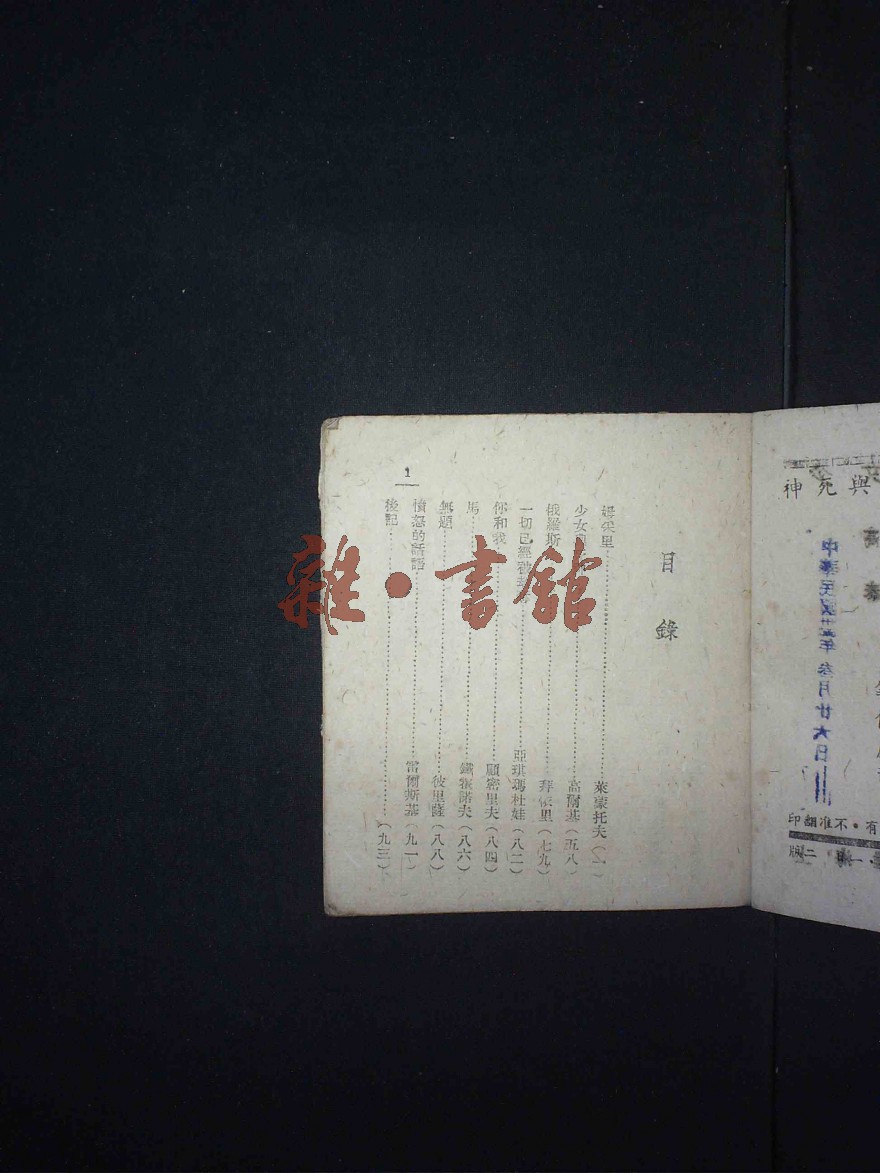 目錄
姆采里⋯⋯萊蒙托夫（一）
少女⋯⋯高爾基（五八）
俄羅斯⋯⋯拜依里（七九）
一切已經⋯⋯亞琪瑪杜娃（八二）
你和我⋯⋯顧密里夫（八四）
馬⋯⋯鐵霍諾夫（八六）
無題⋯⋯彼里薩（八八）
憤怒的話語⋯⋯雷爾斯基（九一）
後記⋯⋯（九三）
1
雜·書館
神死與
中華民國
年 月廿六日
有·不准翻印
版二